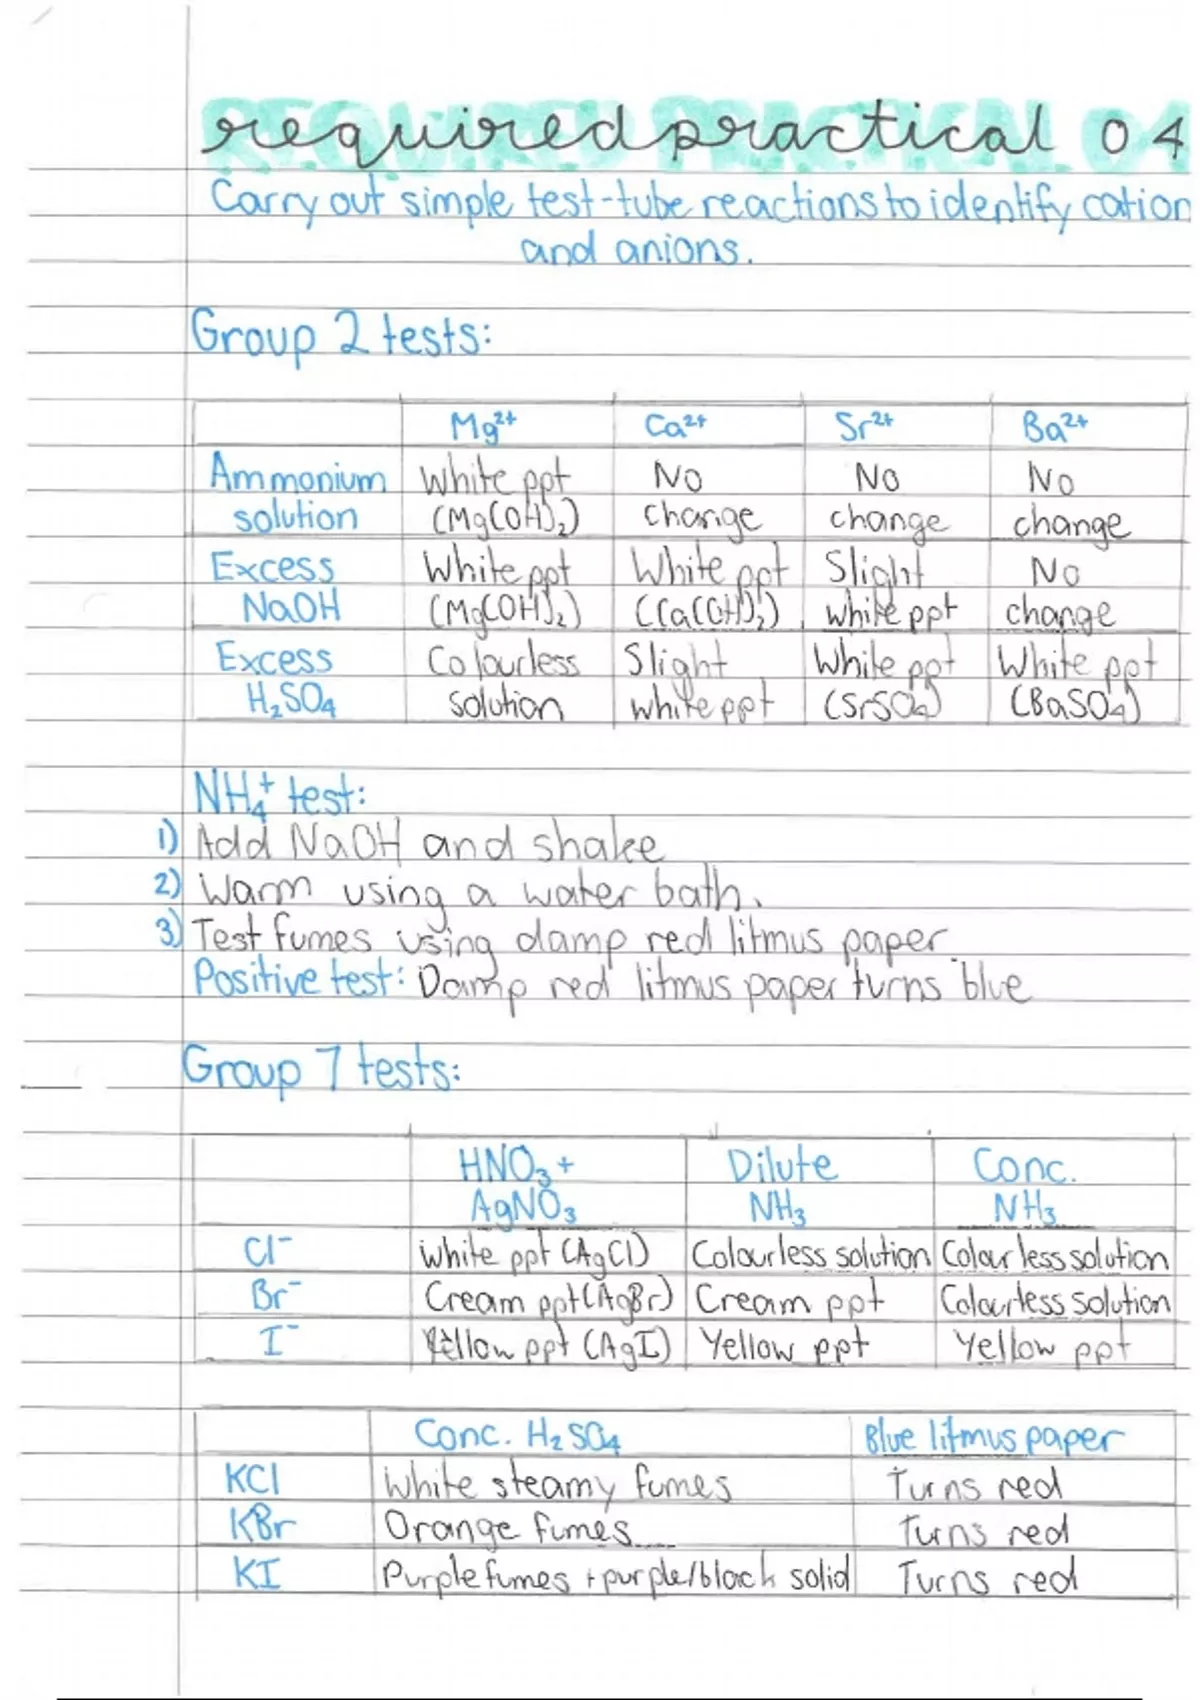 required practical 04
Carry out simple test-tube reactions to identify cation
and anions.
Group 2 tests:
Mg²⁺ Ca²⁺ Sr²⁺ Ba²⁺
Ammonium White ppt No No No
solution (Mg(OH)₂) change change change
Excess White ppt White ppt Slight No
NaOH (Mg(OH)₂) (Ca(OH)₂) white ppt change
Excess Colourless Slight White ppt White ppt
H₂SO₄ solution white ppt (SrSO₄) (BaSO₄)
NH₄⁺ test:
1) Add NaOH and shake
2) Warm using a water bath.
3) Test fumes using damp red litmus paper.
Positive test: Damp red litmus paper turns blue
Group 7 tests:
HNO₃ + Dilute Conc.
AgNO₃ NH₃ NH₃
Cl⁻ White ppt (AgCl) Colourless solution Colourless solution
Br⁻ Cream ppt (AgBr) Cream ppt Colourless solution
I⁻ Yellow ppt (AgI) Yellow ppt Yellow ppt
Conc. H₂SO₄ Blue litmus paper
KCl White steamy fumes Turns red
KBr Orange fumes Turns red
KI Purple fumes + purple/black solid Turns red